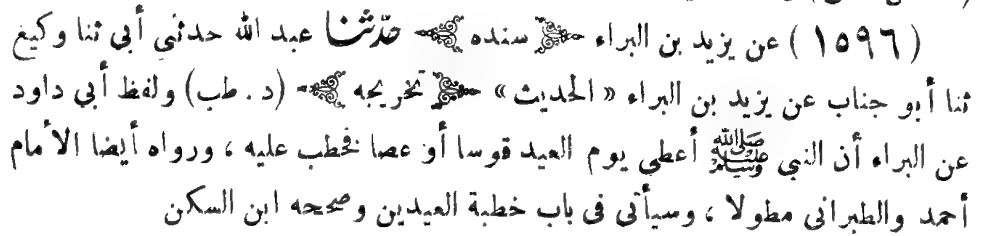 (١٥٩٦) عن يزيد بن البراء ﴿سنده﴾ حدّثنا عبد الله حدثني أبي ثنا وكيع
ثنا أبو جناب عن يزيد بن البراء «الحديث» ﴿تخريجه﴾ (د . طب) ولفظ أبي داود
عن البراء أن النبي ﷺ أعطى يوم العيد قوسا أو عصا فخطب عليه ، ورواه أيضا الأمام
أحمد والطبرانى مطولا ، وسيأتى فى باب خطبة العيدين وصححه ابن السكن